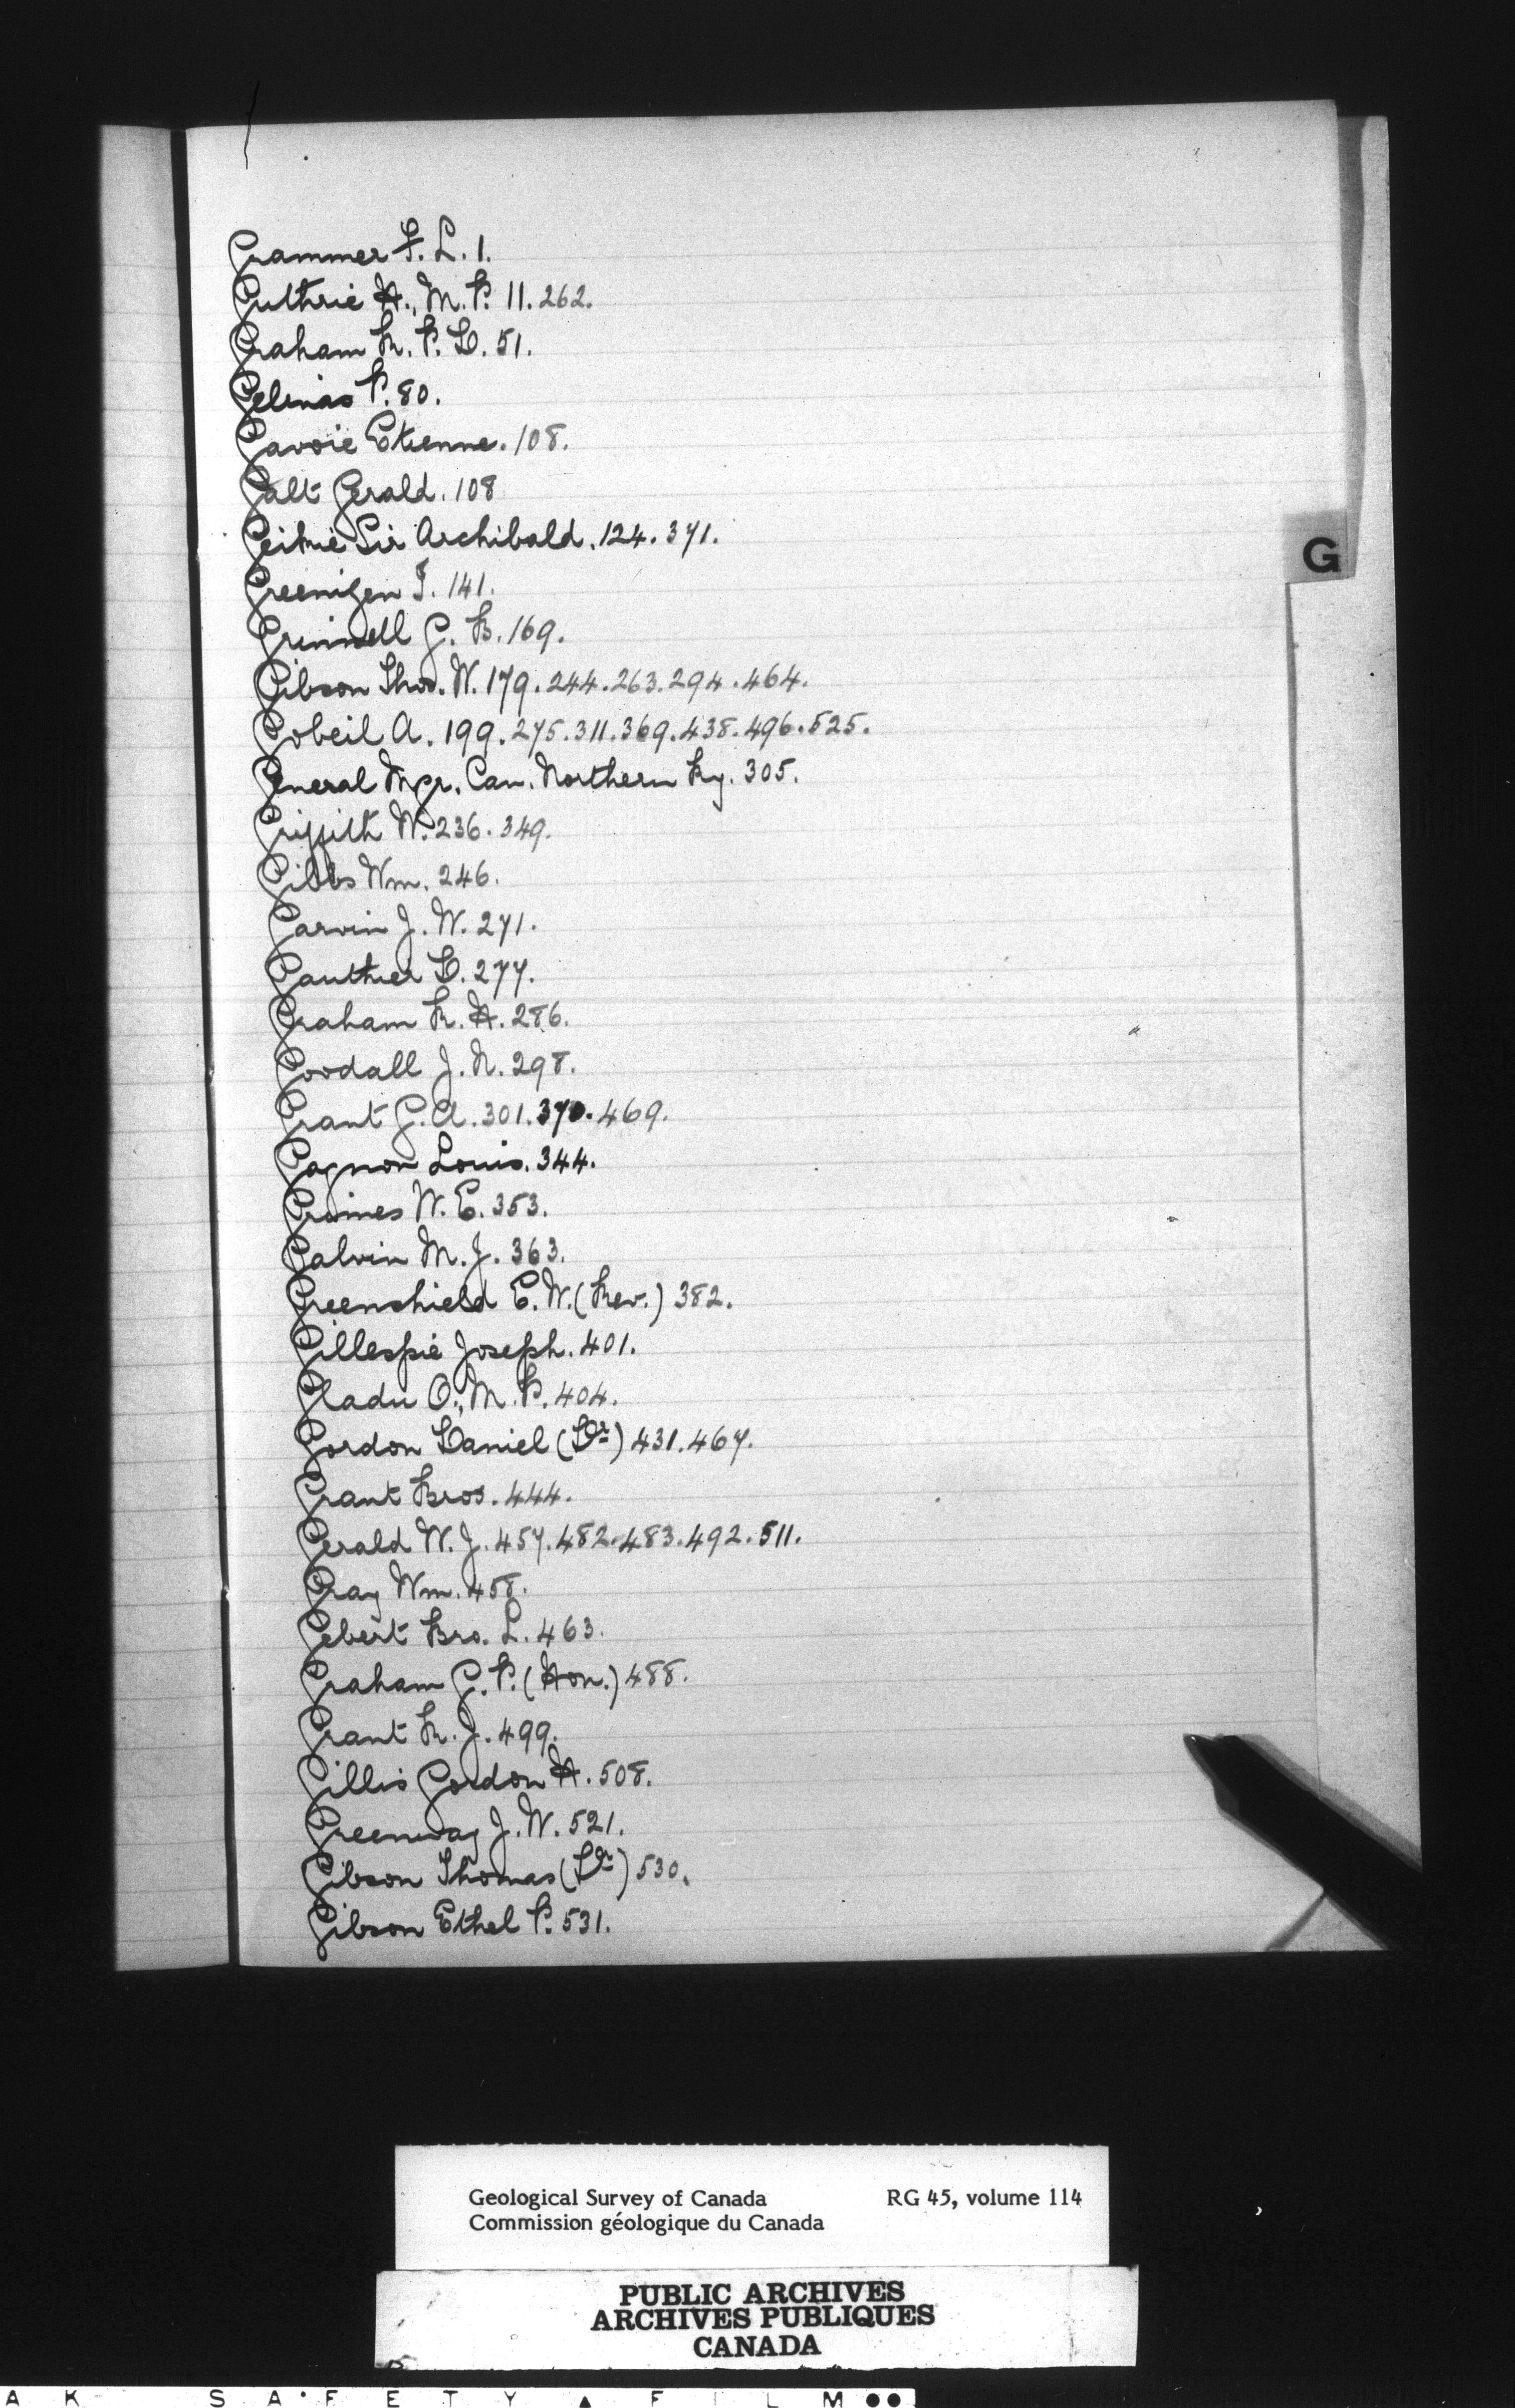 Grammer F. L. 1.
Guthrie H., M.P. 11. 262.
Graham R. P. D. 51.
Gelinas P. 80.
Gavoie Etienne. 108.
Galt Gerald. 108
Geikie Sir Archibald. 124. 371.
Greenizen J. 141.
Grinnell G. B. 169.
Gibson Thos. W. 179. 244. 263. 294. 464.
Gobeil A. 199. 275. 311. 369. 438. 496. 525.
General Mgr. Can. Northern Ry. 305.
Griffith W. 236. 349.
Gibbs Wm. 246.
Garvin J. W. 271.
Gauthier D. 277.
Graham R. H. 286.
Goodall J. N. 298.
Grant G. A. 301. 370. 469.
Gagnon Louis. 344.
Graines W. E. 353.
Galvin M. J. 363.
Greenshield E. W. (Rev.) 382.
Gillespie Joseph. 401.
Gladu O., M.P. 404.
Gordon Daniel (Dr) 431. 467.
Grant Bros. 444.
Gerald W. J. 457. 482. 483. 492. 511.
Gray Wm. 458.
Gebert Bro. L. 463.
Graham G. P. (Hon.) 488.
Grant R. J. 499.
Gillis Gordon H. 508.
Greenway J. W. 521.
Gibson Thomas (Dr) 530.
Gibson Ethel P. 531.
G
Geological Survey of Canada RG 45, volume 114
Commission géologique du Canada
PUBLIC ARCHIVES
ARCHIVES PUBLIQUES
CANADA
A K SAFETY ▲ FILM ●●